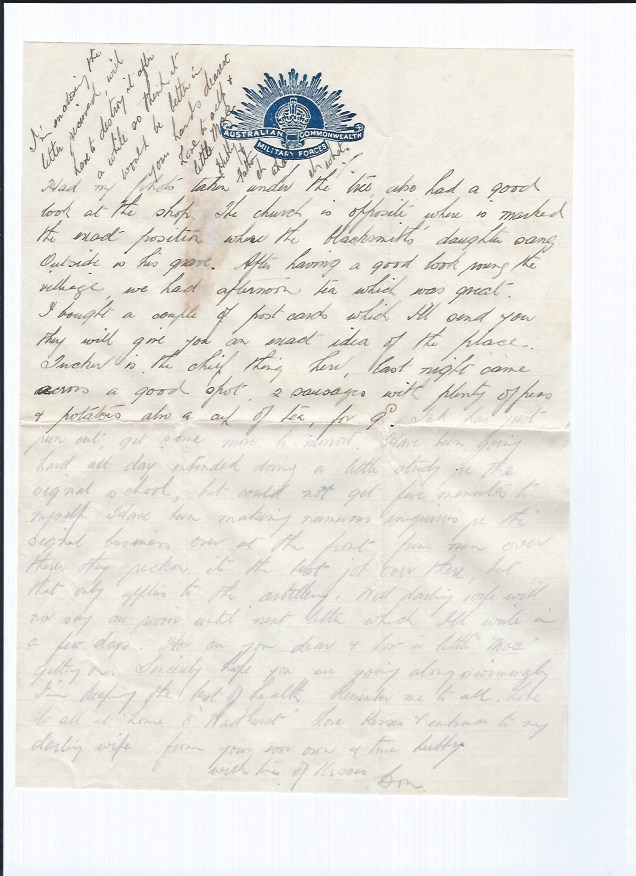 I'm enclosing the
letter received, will
have to destroy it after
a while so think it
would be better in
your hands dearest
Love to self &
little
Hubby
AUSTRALIAN COMMONWEALTH
MILITARY FORCES
Had my photo taken under the tree also had a good
look at the shop. The church is opposite, where is marked
the exact position where the blacksmith's daughter sang.
Outside is his grave. After having a good look round the
village, we had afternoon tea which was great.
I bought a couple of post cards which I'll send you
they will give you an exact idea of the place.
Tucker is the chief thing here, last night came
across a good spot, 2 sausages with plenty of peas
& potatoes also a cup of tea, for 9D. Ink has just
run out, get some more to morrow. Have been going
hard all day intended doing a little study re the
signal school, but could not get five minutes to
myself. Have been making numerous enquiries re the
signal business over at the front, from men over
there they reckon it the best job over there, but
that only applies to the artillery. Well darling wife will
now say au revoir until next letter which I'll write in
a few days. How are you dear & how is little
getting on. Sincerely hope you are going along swimmingly
I'm keeping the best of health. Remember me to all. Love
to all at home & Love kisses & embraces to my
darling wife from your ever own & true hubby
with tons of kisses Don